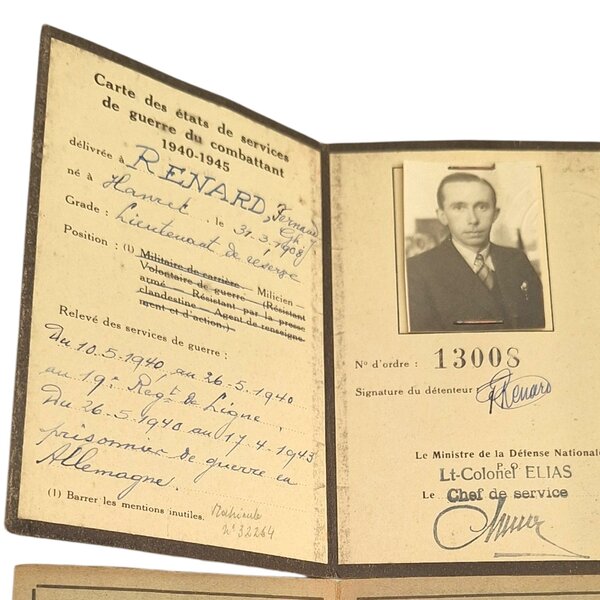 Carte des états de services
de guerre du combattant
1940-1945
délivrée à RENARD, Fernand
Ch. J.
né à Hanret, le 31.3.1908
Grade : Lieutenant de réserve
Position : (1) Militaire de carrière – Milicien –
Volontaire de guerre – (Résistant
armé – Résistant par la presse
clandestine – Agent de renseigne-
ment et d'action.)
Relevé des services de guerre :
Du 10.5-1940, au 26-5-1940
au 19e Regt de Ligne,
Du 26-5-1940 au 17-4-1943
prisonnier de guerre en
Allemagne.
(1) Barrer les mentions inutiles.
Matricule
n° 32264
N° d'ordre : 13008
Signature du détenteur Renard
Le Ministre de la Défense Nationale
P O
Lt-Colonel ELIAS
Le Chef de service